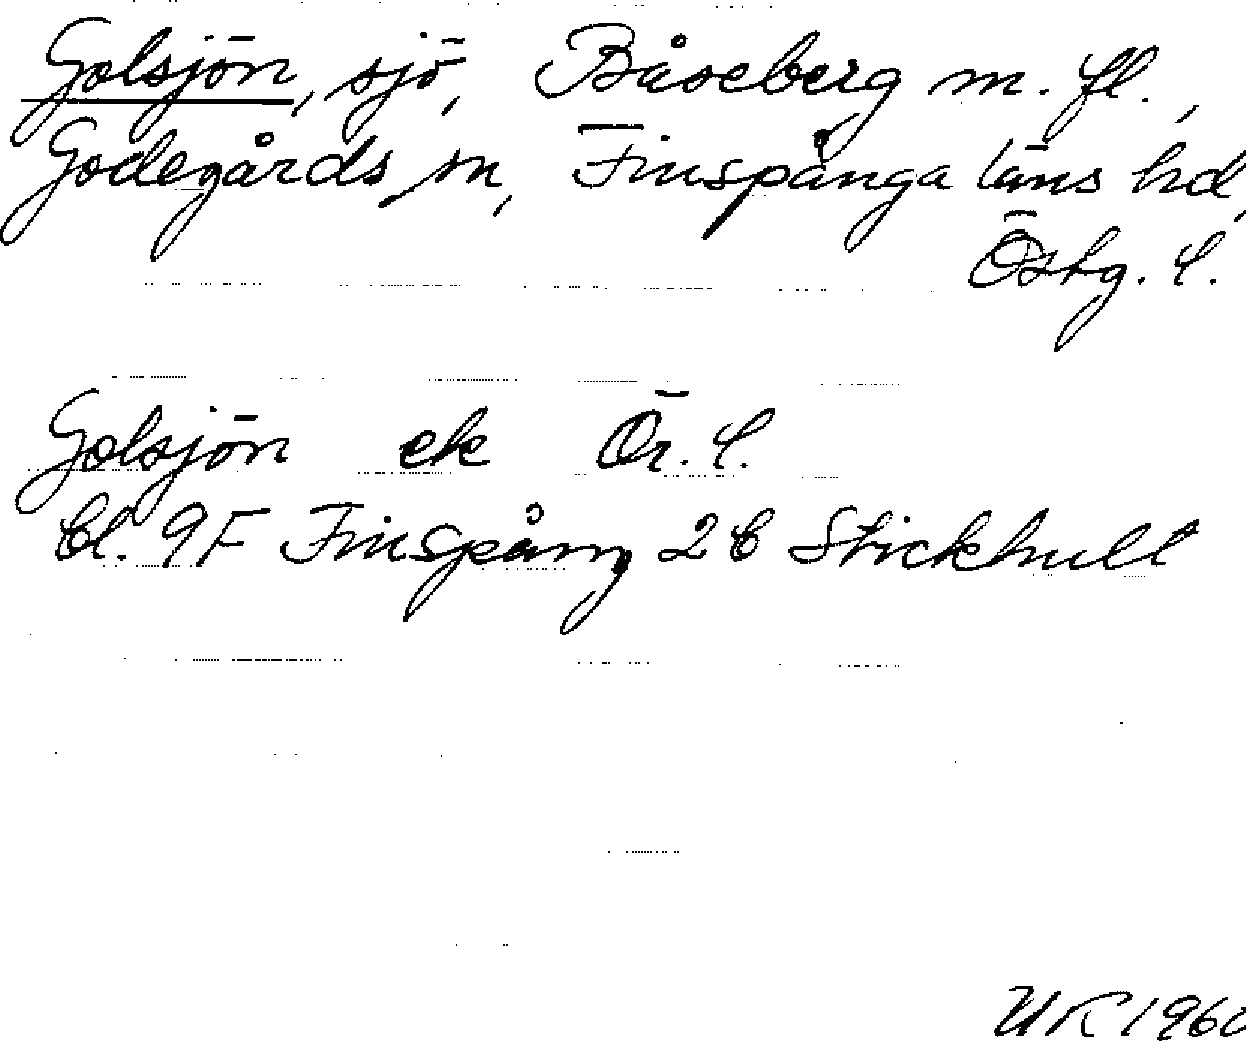 Golsjön, sjö, Båseberg m. fl.,
Godegårds sn, Finspånga läns hd,
Östg. l.
Golsjön ek Ör. l.
bl. 9F Finspång 2b Stickhult
UK 1960